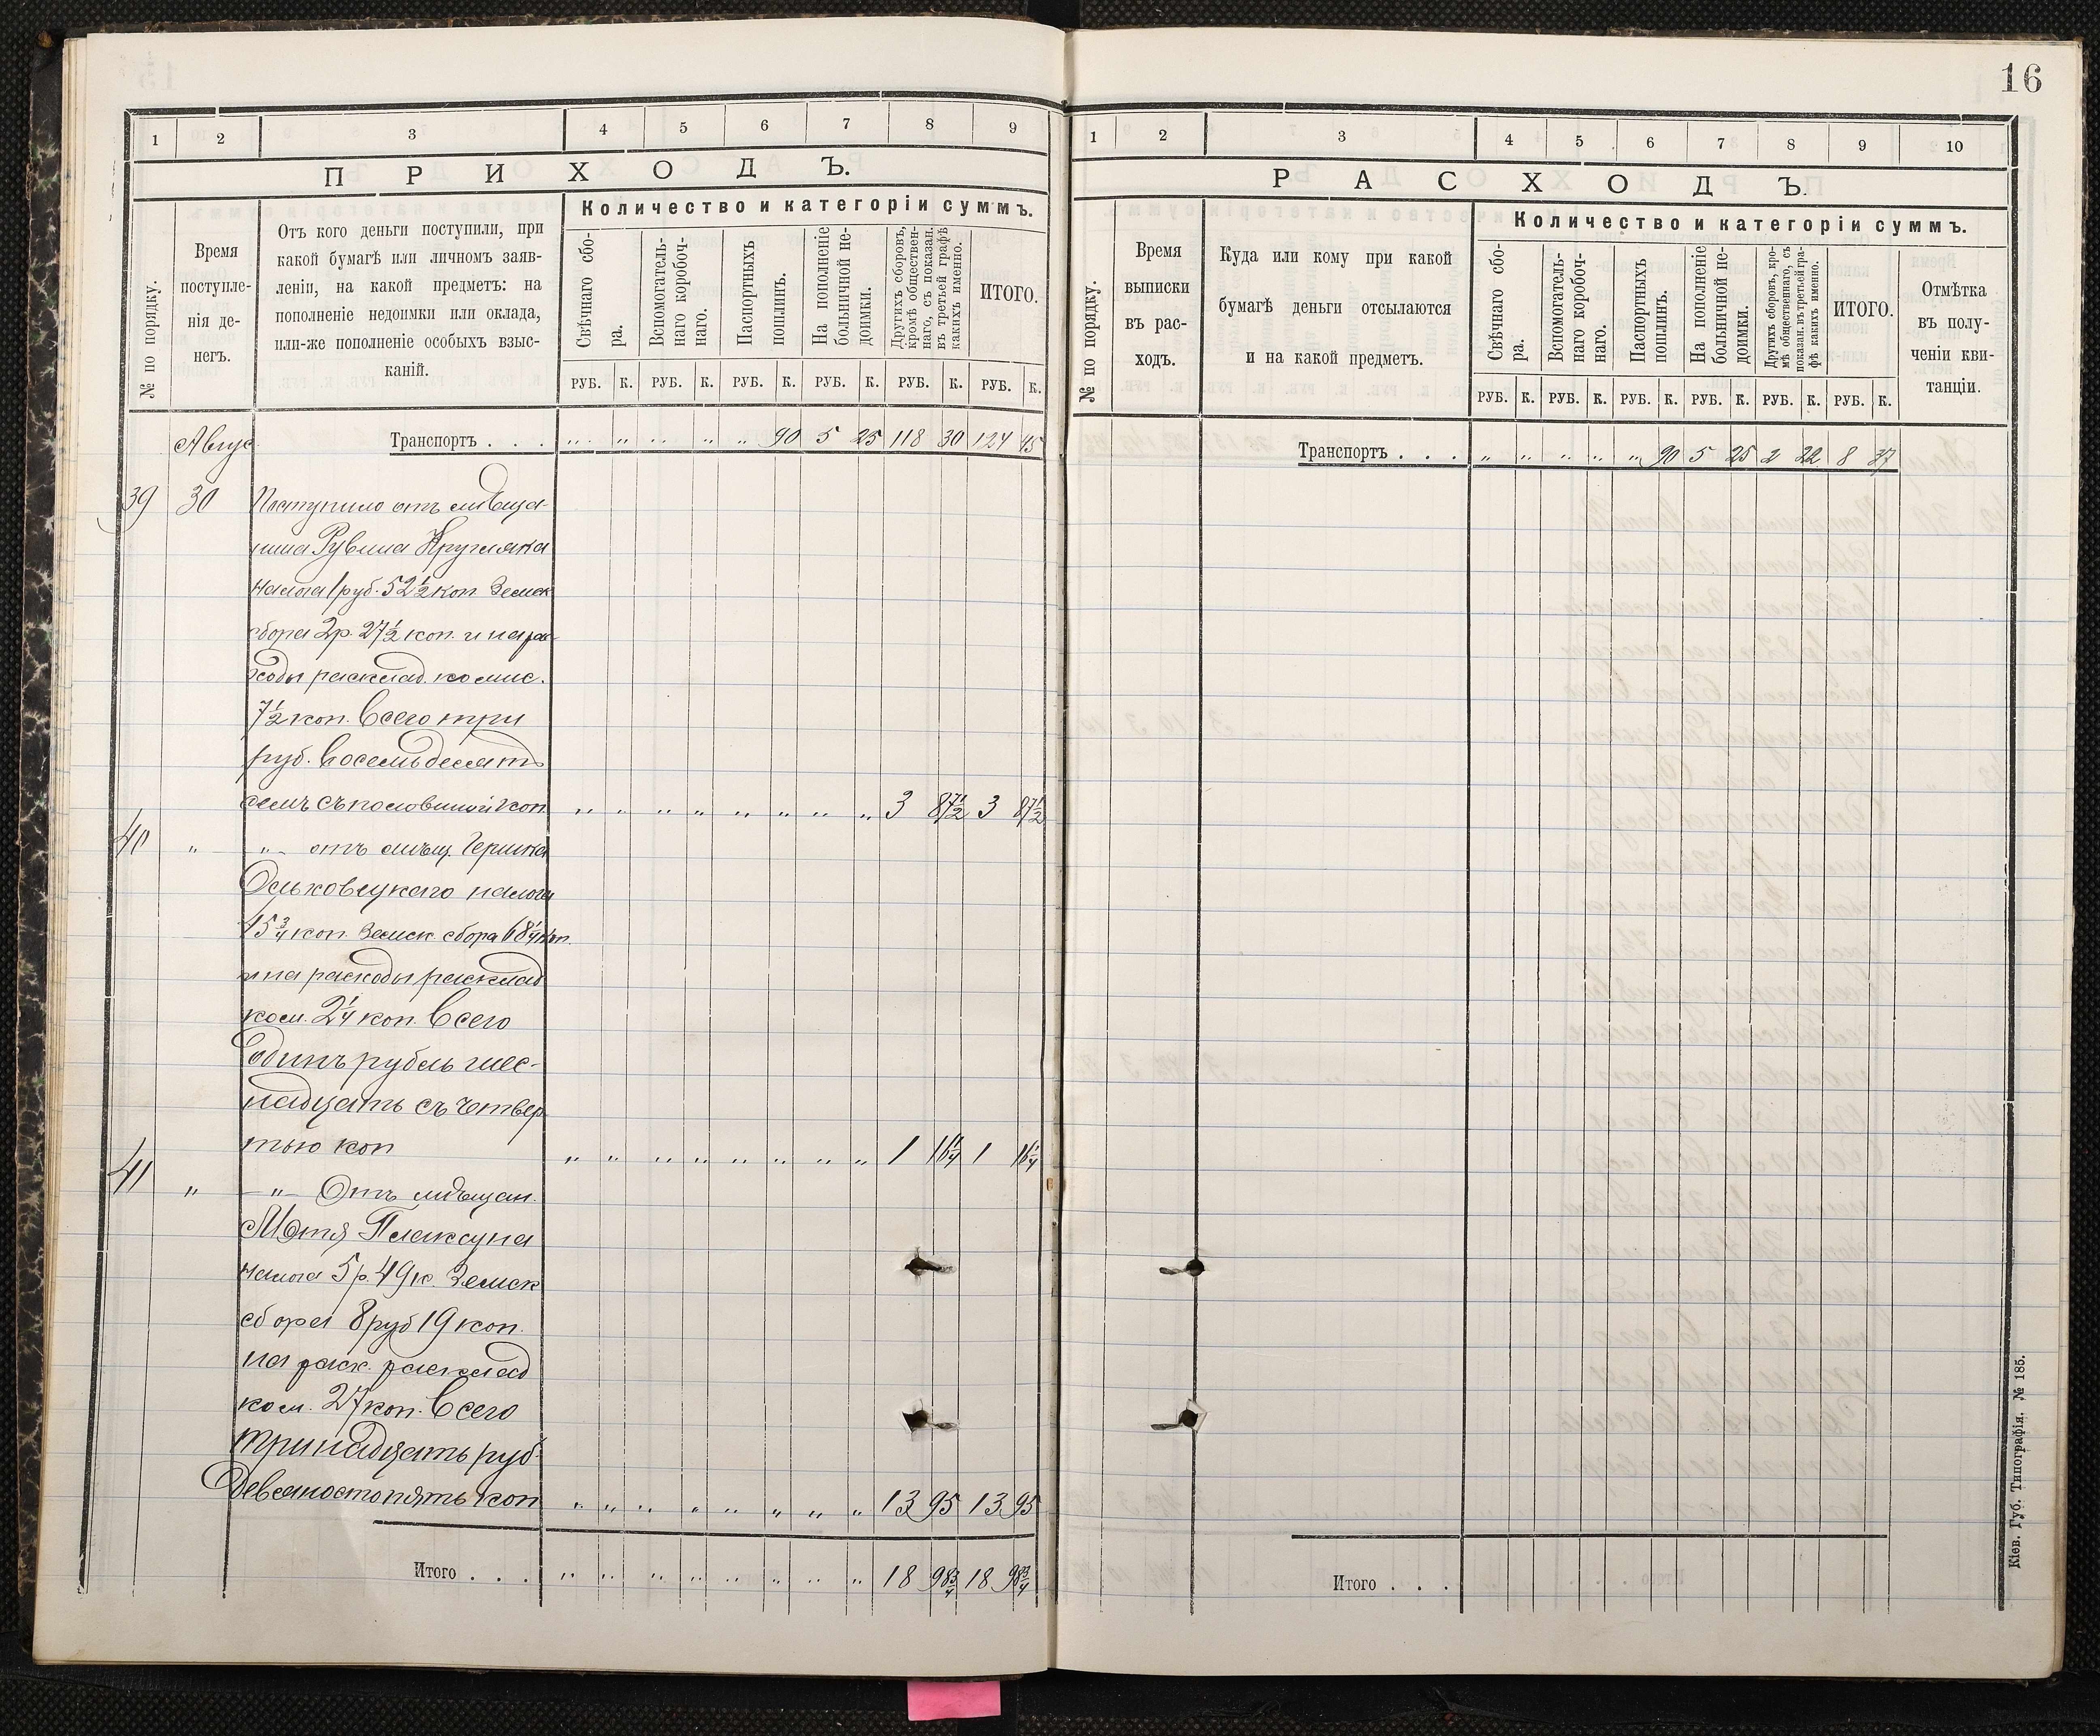 16
1 2 3 4 5 6 7 8 9
ПРИХОДЪ.
№ по порядку.
Время
поступле-
нія де-
негъ.
Отъ кого деньги поступили, при
какой бумагѣ или личномъ заяв-
леніи, на какой предметъ: на
пополненіе недоимки или оклада,
или-же пополненіе особыхъ взыс-
каній.
Количество и категоріи суммъ.
Свѣчнаго сбо-
ра.
Вспомогатель-
наго коробоч-
наго.
Паспортныхъ
пошлинъ.
На пополненіе
больничной не-
доимки.
Другихъ сборовъ,
кромѣ обществен-
наго, съ показан.
въ третьей графѣ
какихъ именно.
ИТОГО.
РУБ. К. РУБ. К. РУБ. К. РУБ. К. РУБ. К. РУБ. К.
Авгус. Транспортъ . . . „ „ „ „ „ 90 5 25 118 30 124 45
39 30 Поступило отъ мѣща-
нина Рувина Кругляка
налога 1 руб. 52½ коп Земск
сбора 2р. 27½ коп. и на рас-
ходы расклад. комис.
7½ коп. Всего три
руб. Восемьдесятъ
семь съ половиной коп „ „ „ „ „ „ „ „ 3 87½ 3 87½
40 „ -„- отъ мѣщ. Гершка
Ольховецкаго налога
45¾ коп. Земск. сбора 68¼ коп.
и на расходы расклад
ком. 2¼ коп. Всего
Одинъ рубль шес-
надцать съ четвер
тью коп „ „ „ „ „ „ „ „ 1 16¼ 1 16¼
41 „ -„- Отъ мѣщан.
Мотя Плаксуна
налога 5 р. 49 к. Земск
сбора 8 руб 19 коп.
на расх. расклад
ком. 27 коп. Всего
тринадцать руб.
Девяносто пять коп „ „ „ „ „ „ „ „ 13 95 13 95
Итого . . . „ „ „ „ „ „ „ „ 18 98¾ 18 98¾
1 2 3 4 5 6 7 8 9 10
РАСХОДЪ.
№ по порядку.
Время
выписки
въ рас-
ходъ.
Куда или кому при какой
бумагѣ деньги отсылаются
и на какой предметъ.
Количество и категоріи суммъ.
Свѣчнаго сбо-
ра.
Вспомогатель-
наго коробоч-
наго.
Паспортныхъ
пошлинъ.
На пополненіе
больничной не-
доимки.
Другихъ сборовъ, кро-
мѣ общественнаго, съ
показан. въ третьей гра-
фѣ какихъ имено.
ИТОГО.
Отмѣтка
въ полу-
ченіи кви-
танціи.
РУБ. К. РУБ. К. РУБ. К. РУБ. К. РУБ. К. РУБ. К.
Транспортъ . . . „ „ „ „ „ 90 5 25 2 22 8 37
Итого . . .
Кіев. Губ. Типографія. № 185.